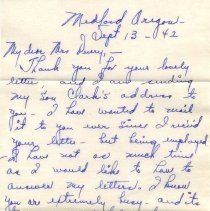 Medford Oregon
Sept 13 - 42
My dear Mrs
Thank you for your lovely
letter, and I am sending
my Son Clark's address to
you - I have wanted to mail
it to you ever since I rec'd
your letter - but being employed
I have not as much time
as I would like to have to
answer my letters. I know
you are extremely busy - and its